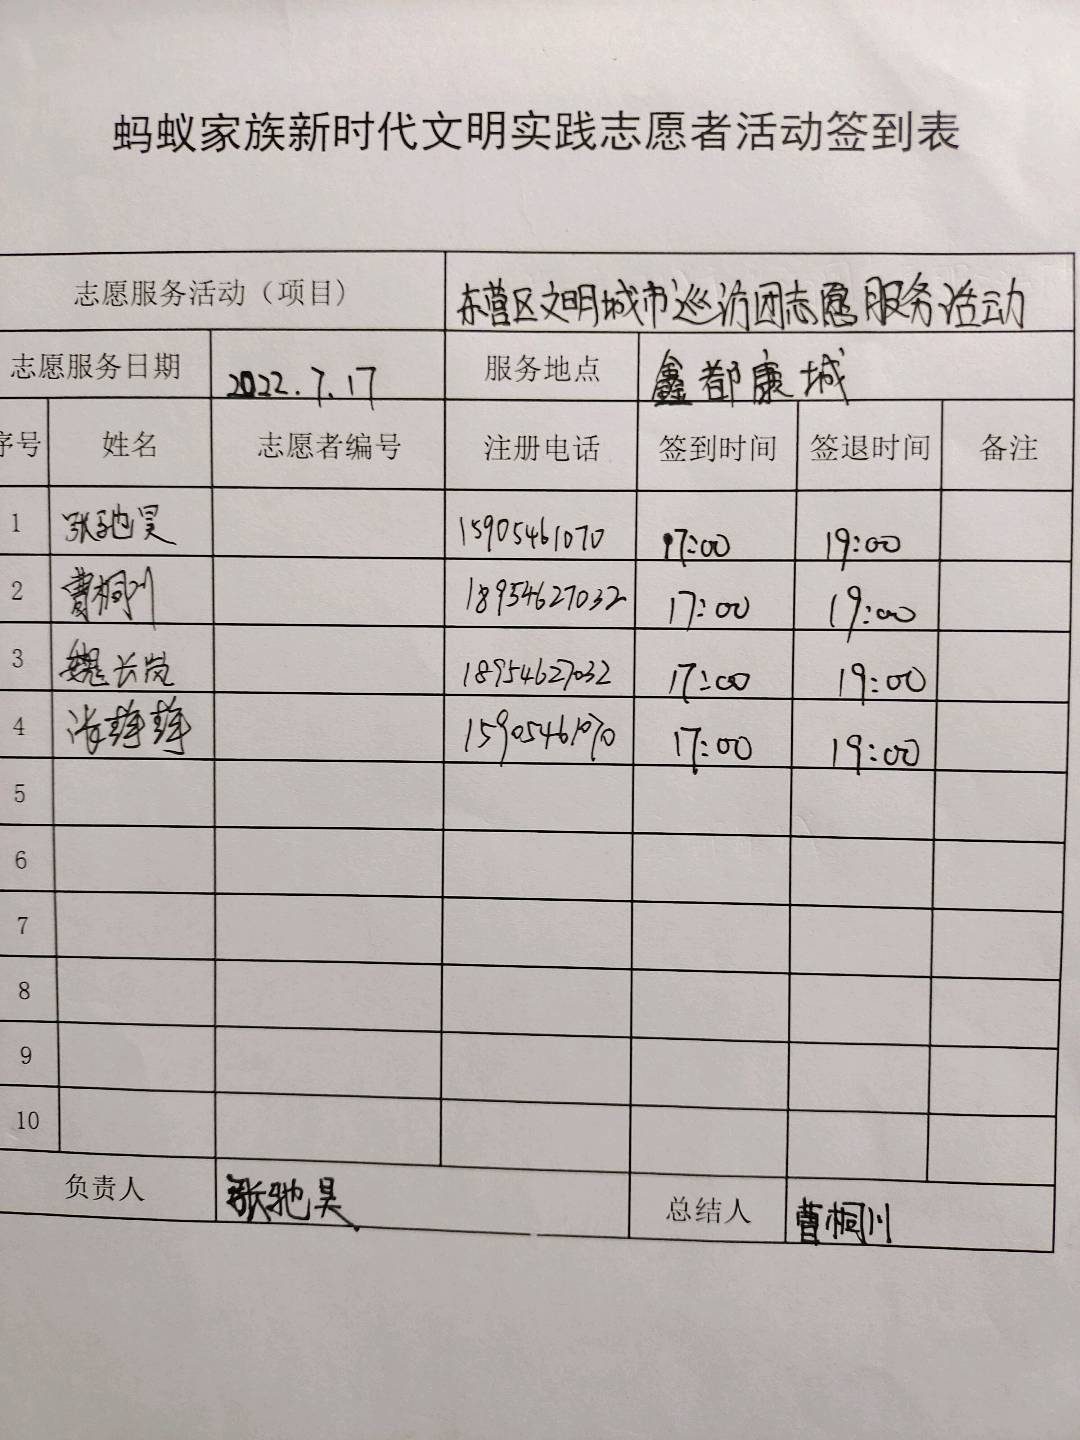 蚂蚁家族新时代文明实践志愿者活动签到表
志愿服务活动（项目） 东营区文明城市巡访团志愿服务活动
志愿服务日期 2022.7.17 服务地点 鑫都康城
序号 姓名 志愿者编号 注册电话 签到时间 签退时间 备注
1 张驰昊 15905461070 17:00 19:00
2 曹桐川 18954627032 17:00 19:00
3 魏长岚 18954627032 17:00 19:00
4 15905461070 17:00 19:00
5
6
7
8
9
10
负责人 张驰昊 总结人 曹桐川